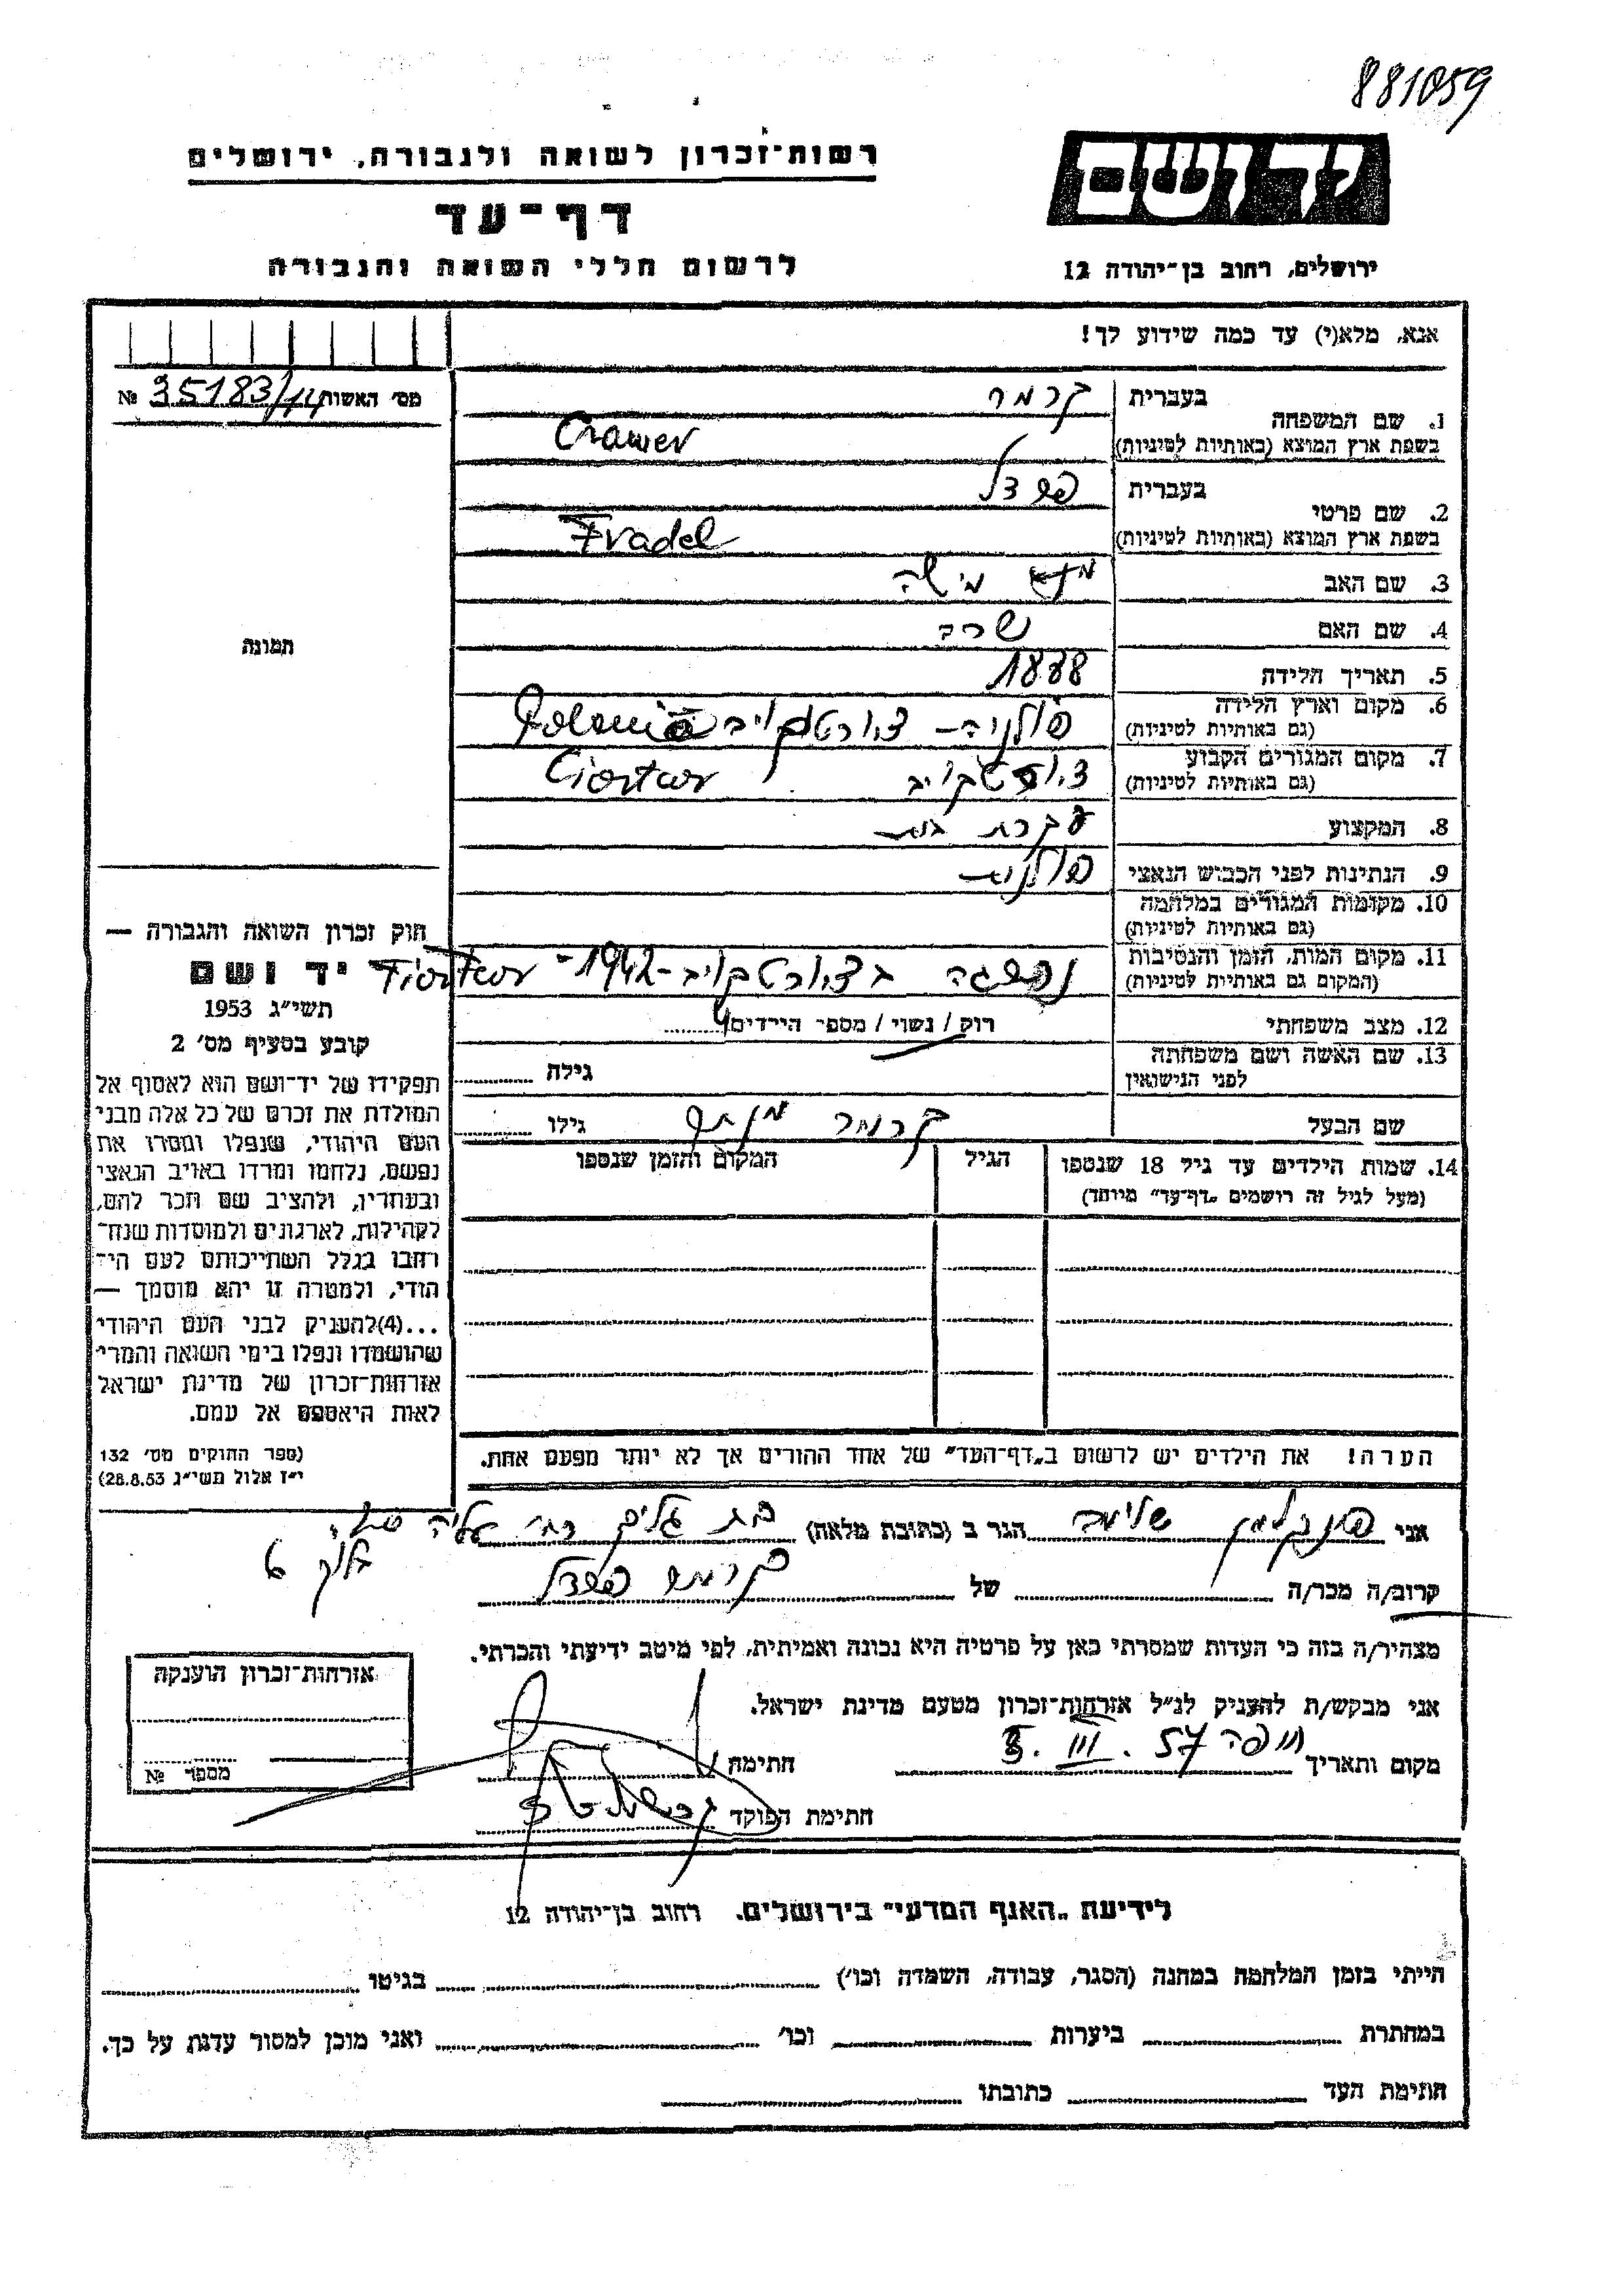 881059
יד ושם
ירושלים, רחוב בן־יהודה 12
רשות־זכרון לשואה ולגבורה, ירושלים
דף־עד
לרשום חללי השואה והגבורה
אנא, מלא(י) עד כמה שידוע לך!
מס' האשות 35183/14 №
בעברית קרמר
1. שם המשפחה
בשפת ארץ המוצא (באותיות לטיניות) Cramer
בעברית פרדל
2. שם פרטי
בשפת ארץ המוצא (באותיות לטיניות) Fradel
3. שם האב
4. שם האם שרה
5. תאריך הלידה 1888
6. מקום וארץ הלידה
(גם באותיות לטיניות) פולניה - צ'ורטקוב Polania
7. מקום המגורים הקבוע
(גם באותיות לטיניות) צ'ורטקוב Ciortcov
8. המקצוע עקרת בית
9. הנתינות לפני הכבוש הנאצי פולנית
10. מקומות המגורים במלחמה
(גם באותיות לטיניות)
11. מקום המות, הזמן והנסיבות
(המקום גם באותיות לטיניות) נספתה בצ'ורטקוב - 1942
12. מצב משפחתי רוק / נשוי / מספר הילדים 4
13. שם האשה ושם משפחתה
לפני הנישואין
גילה
שם הבעל קרמר גילו
14. שמות הילדים עד גיל 18 שנספו הגיל המקום והזמן שנספו
(מעל לגיל זה רושמים "דף־עד" מיוחד)
הערה! את הילדים יש לרשום ב"דף־העד" של אחד ההורים אך לא יותר מפעם אחת.
תמונה
חוק זכרון השואה והגבורה —
יד ושם
תשי"ג 1953
קובע בסעיף מס' 2
תפקידו של יד־ושם הוא לאסוף אל
המולדת את זכרם של כל אלה מבני
העם היהודי, שנפלו ומסרו את
נפשם, נלחמו ומרדו באויב הנאצי
ובעוזריו, ולהציב שם וזכר להם,
לקהילות, לארגונים ולמוסדות שנח־
רחבו בגלל השתייכותם לעם הי־
הודי, ולמטרה זו יהא מוסמך —
...(4)להעניק לבני העם היהודי
שהושמדו ונפלו בימי השואה והמרי
אזרחות־זכרון של מדינת ישראל
לאות היאספם אל עמם.
(ספר החוקים מס' 132
י"ז אלול תשי"ג 28.8.53)
אני הגר ב (כתובת מלאה) בת גלים רח' עליה
קרוב/ה מכר/ה של קרמר פרדל
מצהיר/ה בזה כי העדות שמסרתי כאן על פרטיה היא נכונה ואמיתית, לפי מיטב ידיעתי והכרתי.
אני מבקש/ת להעניק לנ"ל אזרחות־זכרון מטעם מדינת ישראל.
מקום ותאריך חיפה 8. III. 57 חתימה
חתימת הפוקד
אזרחות־זכרון הוענקה
מספר №
לידיעת "האגף המדעי" בירושלים, רחוב בן־יהודה 12
הייתי בזמן המלחמה במחנה (הסגר, עבודה, השמדה וכו') בגיטו
במחתרת ביערות וכו' ואני מוכן למסור עדות על כך.
חתימת העד כתובתו